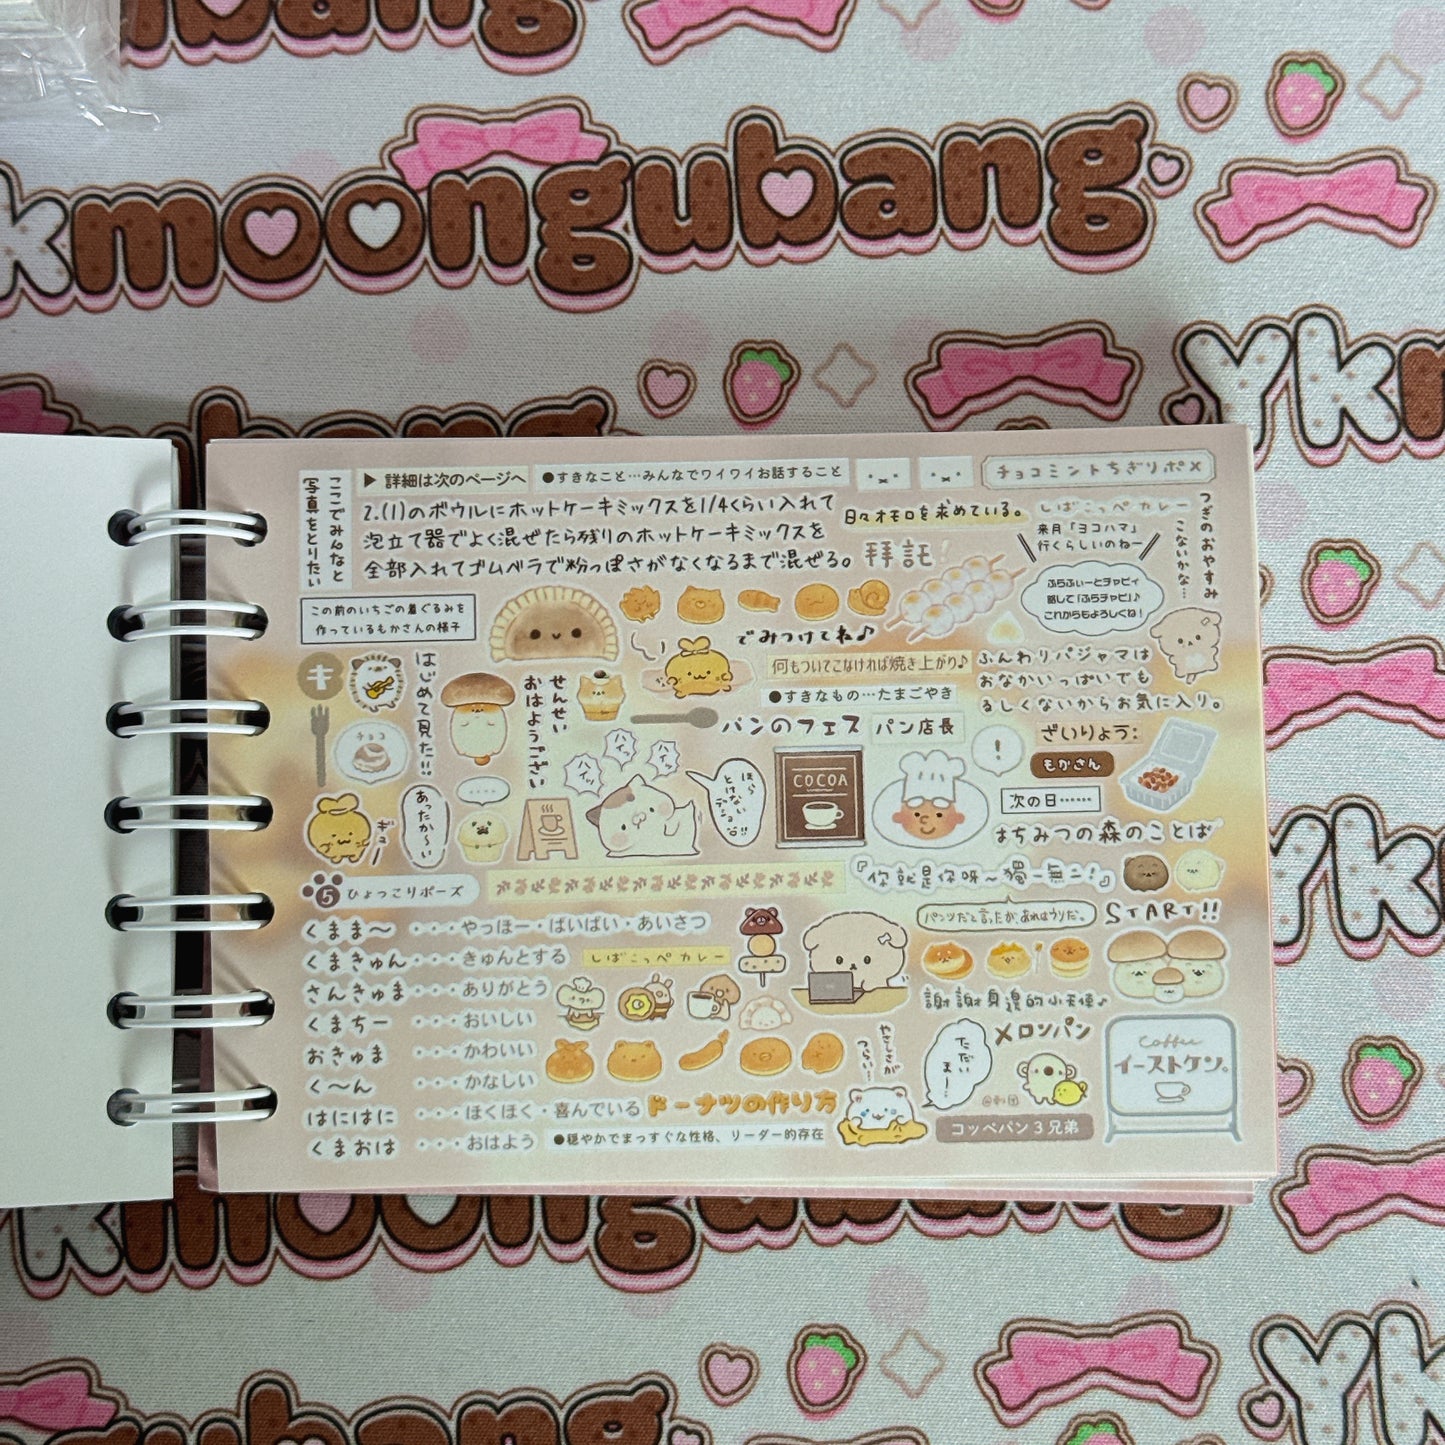 kmoongubang
Yk
ここでみんなと
写真をとりたい
▶ 詳細は次のページへ
●すきなこと…みんなでワイワイお話すること
チョコミントちぎりポメ
2.(1)のボウルにホットケーキミックスを1/4くらい入れて
泡立て器でよく混ぜたら残りのホットケーキミックスを
全部入れてゴムベラで粉っぽさがなくなるまで混ぜる。
日々オモロを求めている。
しばこっぺカレー
来月「ヨコハマ」
行くらしいのねー
つぎのおやすみ
こないかな…
拜託!
ふらふぃーとチャビィ
略して「ふらチャビ」♪
これからもよろしくね!
この前のいちごの着ぐるみを
作っているもかさんの様子
でみつけてね♪
何もついてこなければ焼き上がり♪
●すきなもの…たまごやき
ふんわりパジャマは
おなかいっぱいでも
るしくないからお気に入り。
キ
はじめて見た!!
せんせい
おはようござい
パンのフェス
パン店長
ざいりょう:
もかさん
チョコ
ハイッ
ハイッ
ハイッ
ほら
とけない
でっしょ
COCOA
!
次の日……
はちみつの森のことば
あったか〜い
ギュー
5 ひょっこりポーズ
『你就是你呀~獨一無二!』
パンツだと言ったが、あれはうりだ。
START!!
くまま〜 ・・・やっほー・ばいばい・あいさつ
くまきゅん・・・きゅんとする
しばこっぺカレー
さんきゅま・・・ありがとう
くまちー ・・・おいしい
おきゅま ・・・かわいい
く〜ん ・・・かなしい
はにはに ・・・ほくほく・喜んでいる
くまおは ・・・おはよう
謝謝身邊的小天使♪
やさしさが
つらい…
ただい
まー
メロンパン
Coffee
イーストケン。
ドーナツの作り方
●穏やかでまっすぐな性格、リーダー的存在
コッペパン3兄弟
kmoongubang
Yk